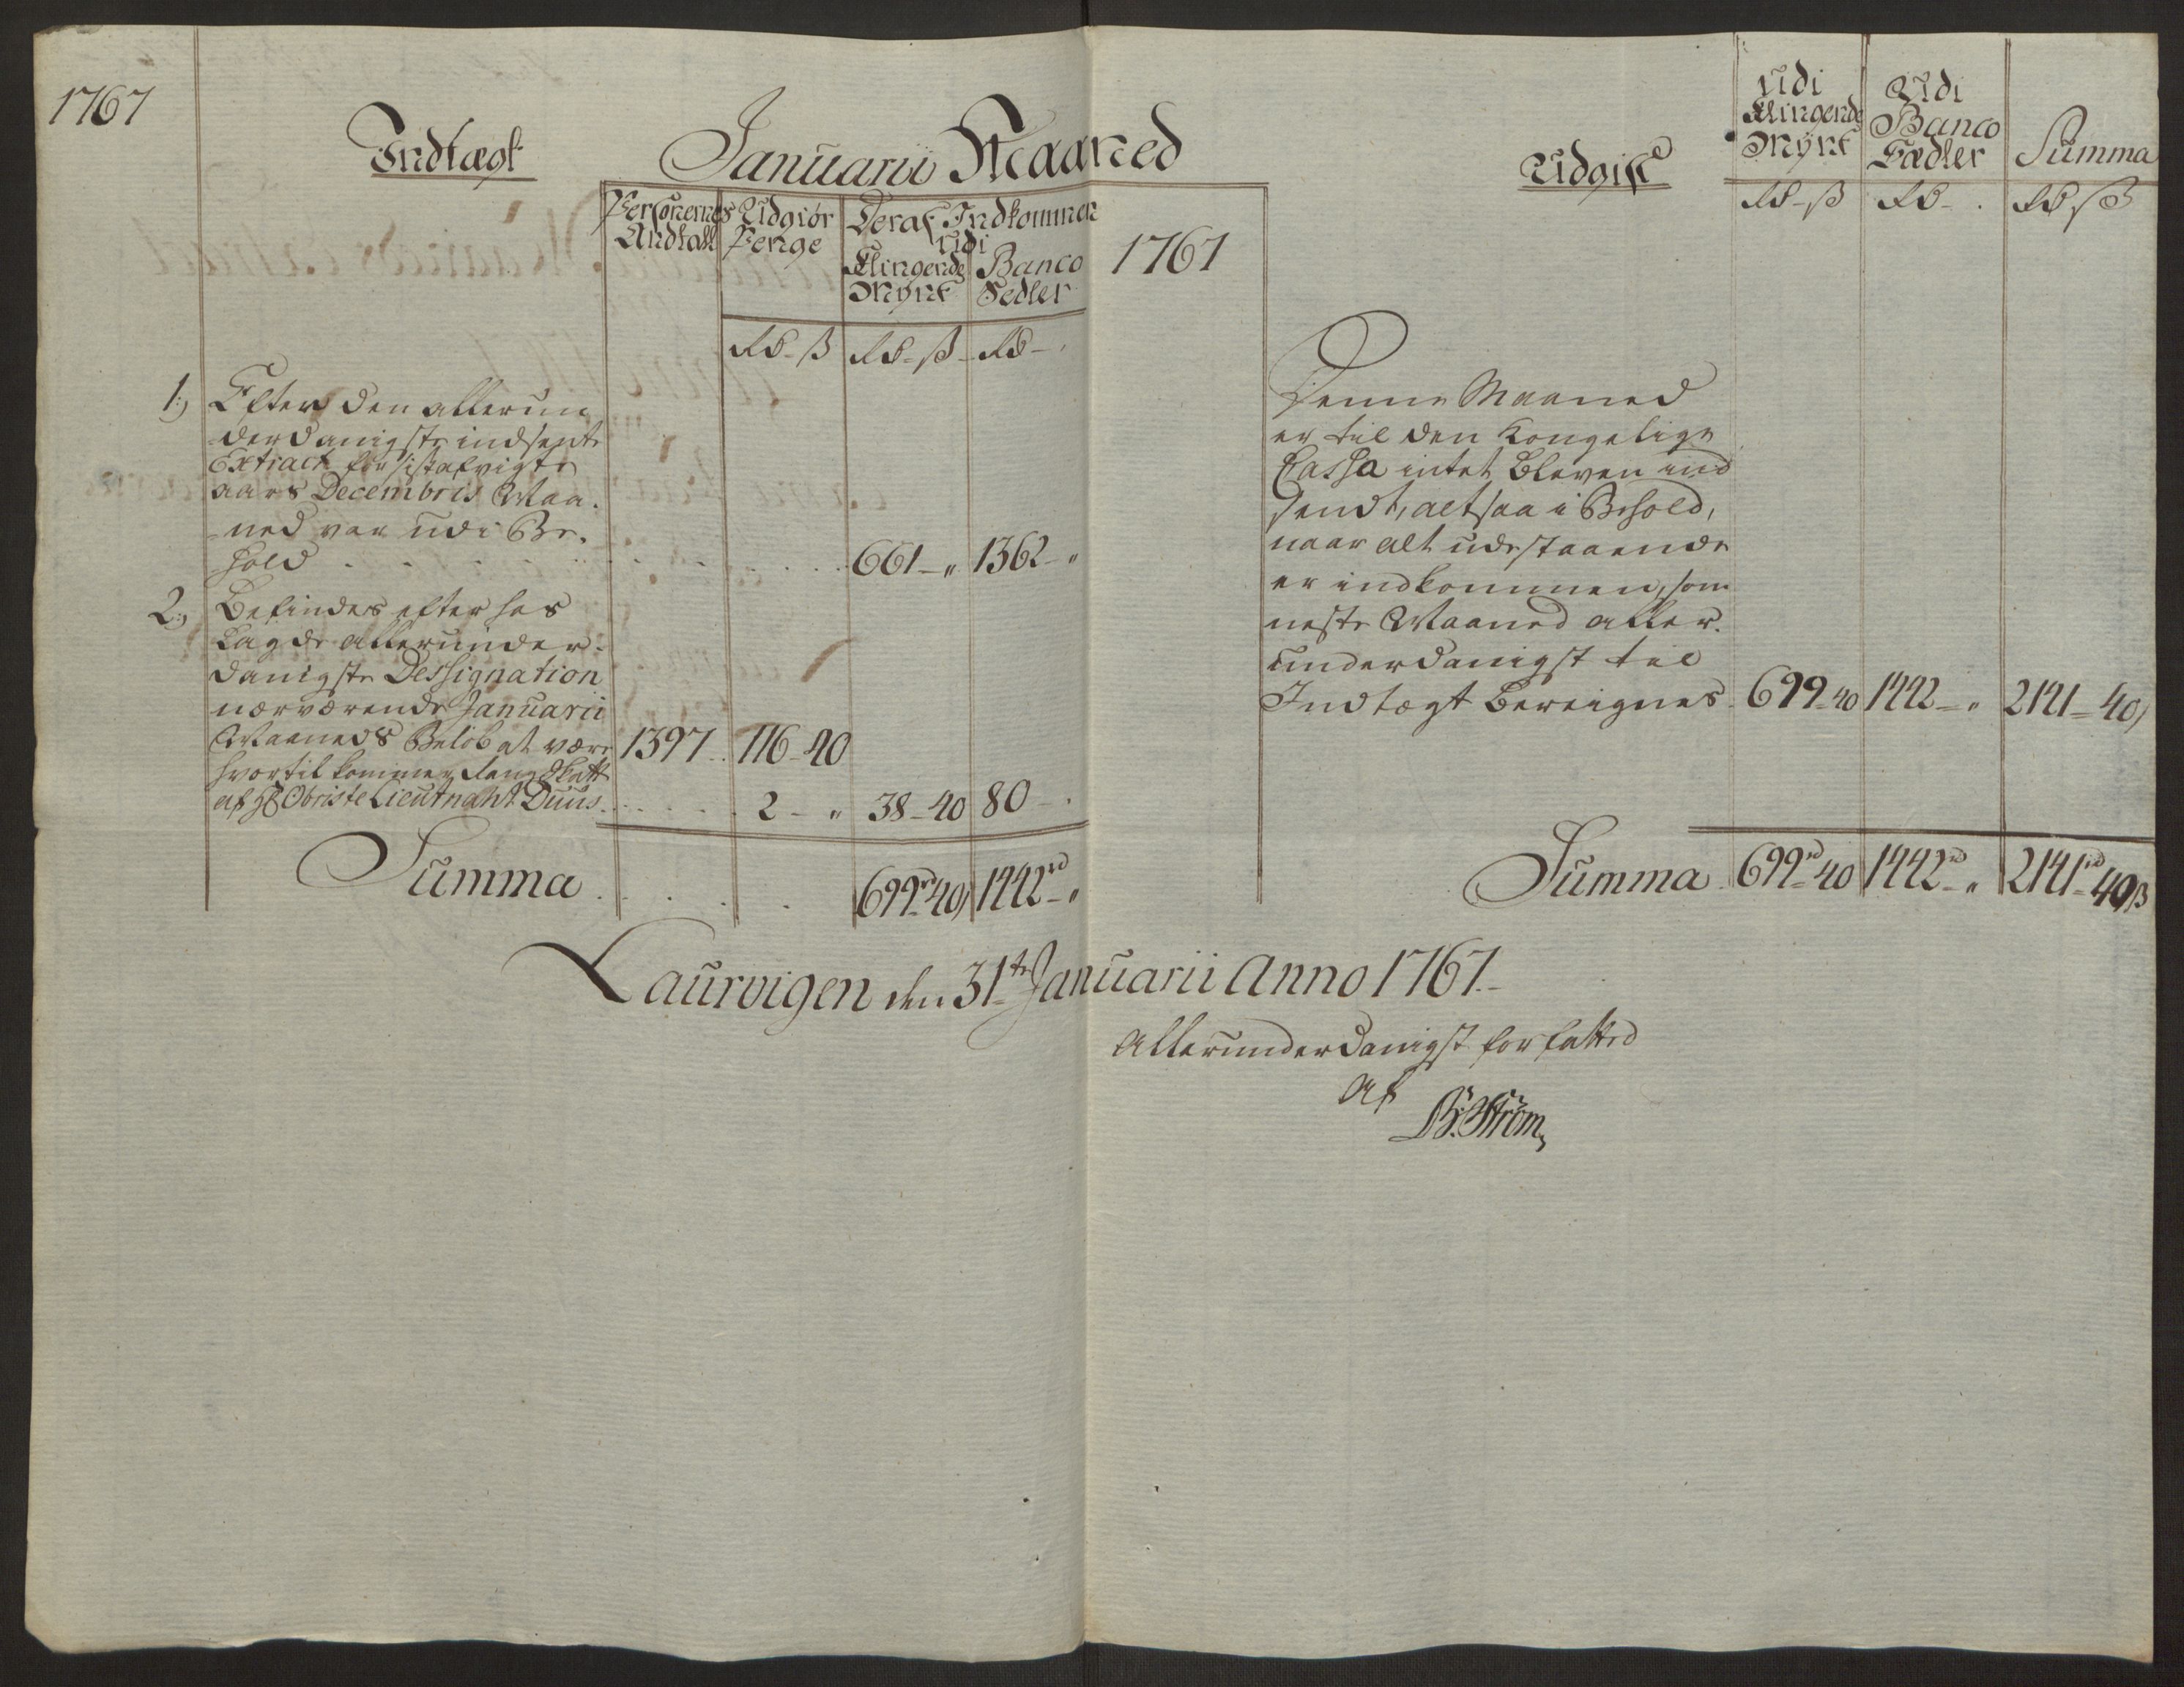 1767
Indtægt
Januarii Maaned
Personernes
Andtall
Udgiør
Penge
Deraf Indkommen
udi
Klingende
Mynt
Banco
Sedler
Rd - ß
Rd - ß
Rd -
1:)
Efter den allerun
derdanigste indsente
Extract for sistafvigte
aars Decembris Maa-
ned var udi Be-
hold . . . 661 - " 1362 - "
2:)
Befindes efter hos
Lagde allerunder-
danigste Dessignation
nærværende Januarii
Maaneds Beløb at være 1397 . . 116 - 40
hvortil kommer Rang Skatt
af Hr Obriste Lieutnant Duus . . . 2 - " 38 - 40 80 -
Summa . . . 699rd 40 1442rd - "
1767
Udgift
Udi
Klingende
Mynt
Udi
Banco
Sædler
Summa
Rd - ß
Rd -
Rd ß
Denne Maaned
er til den Kongelige
Cassa intet bleven ind
sendt, altsaa i Behold,
naar alt udestaaende
er indkommen, som
neste Maaned aller-
underdanigst til
Indtægt bereignes 699 - 40 1442 - " 2141 - 40
Summa . 699rd 40 1442rd - " 2141rd - 40 ß
Laurvigen den 31te Januarii Anno 1767.
Allerunderdanigst forfatted
Af
B. Strøm